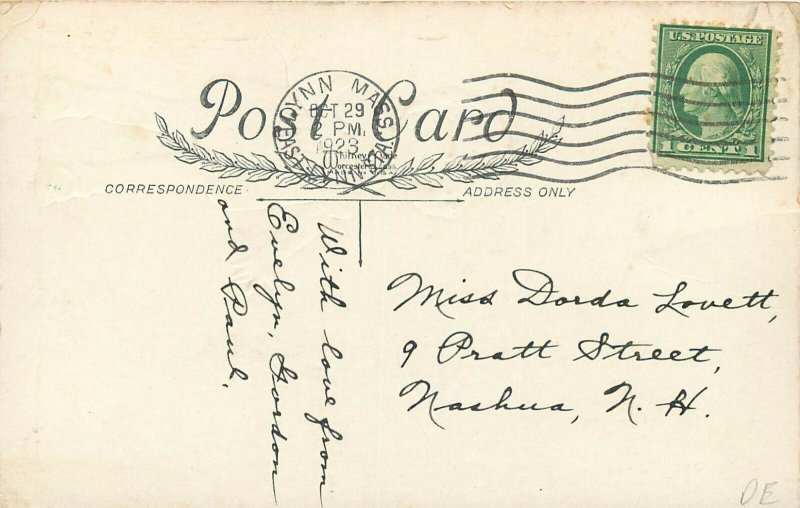 Post Card
LYNN MASS.
OCT 29
PM
1923
EAST LYNN STA.
Whitney Made
Worcester, Mass.
U.S. POSTAGE
1 CENT 1
CORRESPONDENCE
ADDRESS ONLY
With love from
Evelyn, Gordon
and Paul.
Miss Dorda Lovett,
9 Pratt Street,
Nashua, N. H.
OE